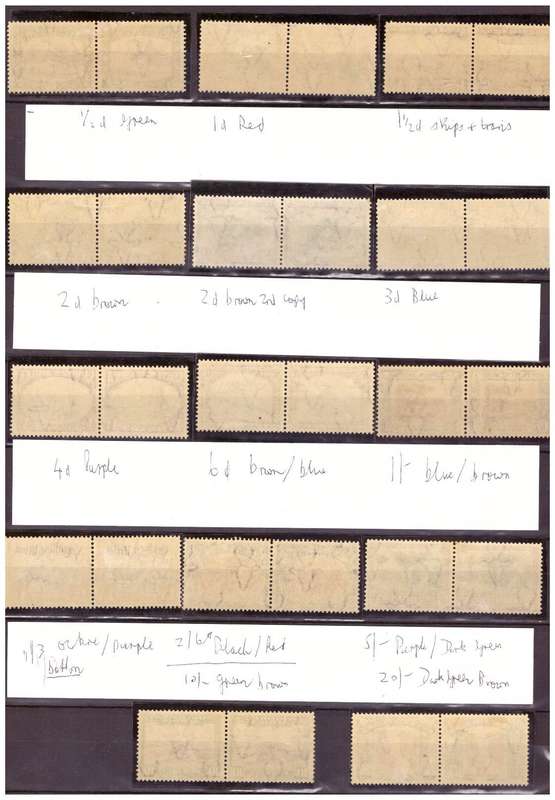 1/2 d Green 1d Red 1 1/2 d ships + trains
2d brown 2d brown 2nd copy 3d Blue
4d Purple 6d brown/blue 1/- blue/brown
1/3 purple 2/6d Black/Red 5/- Purple/Dark Green
Bottom 10/- Green Brown 20/- Dark Green Brown